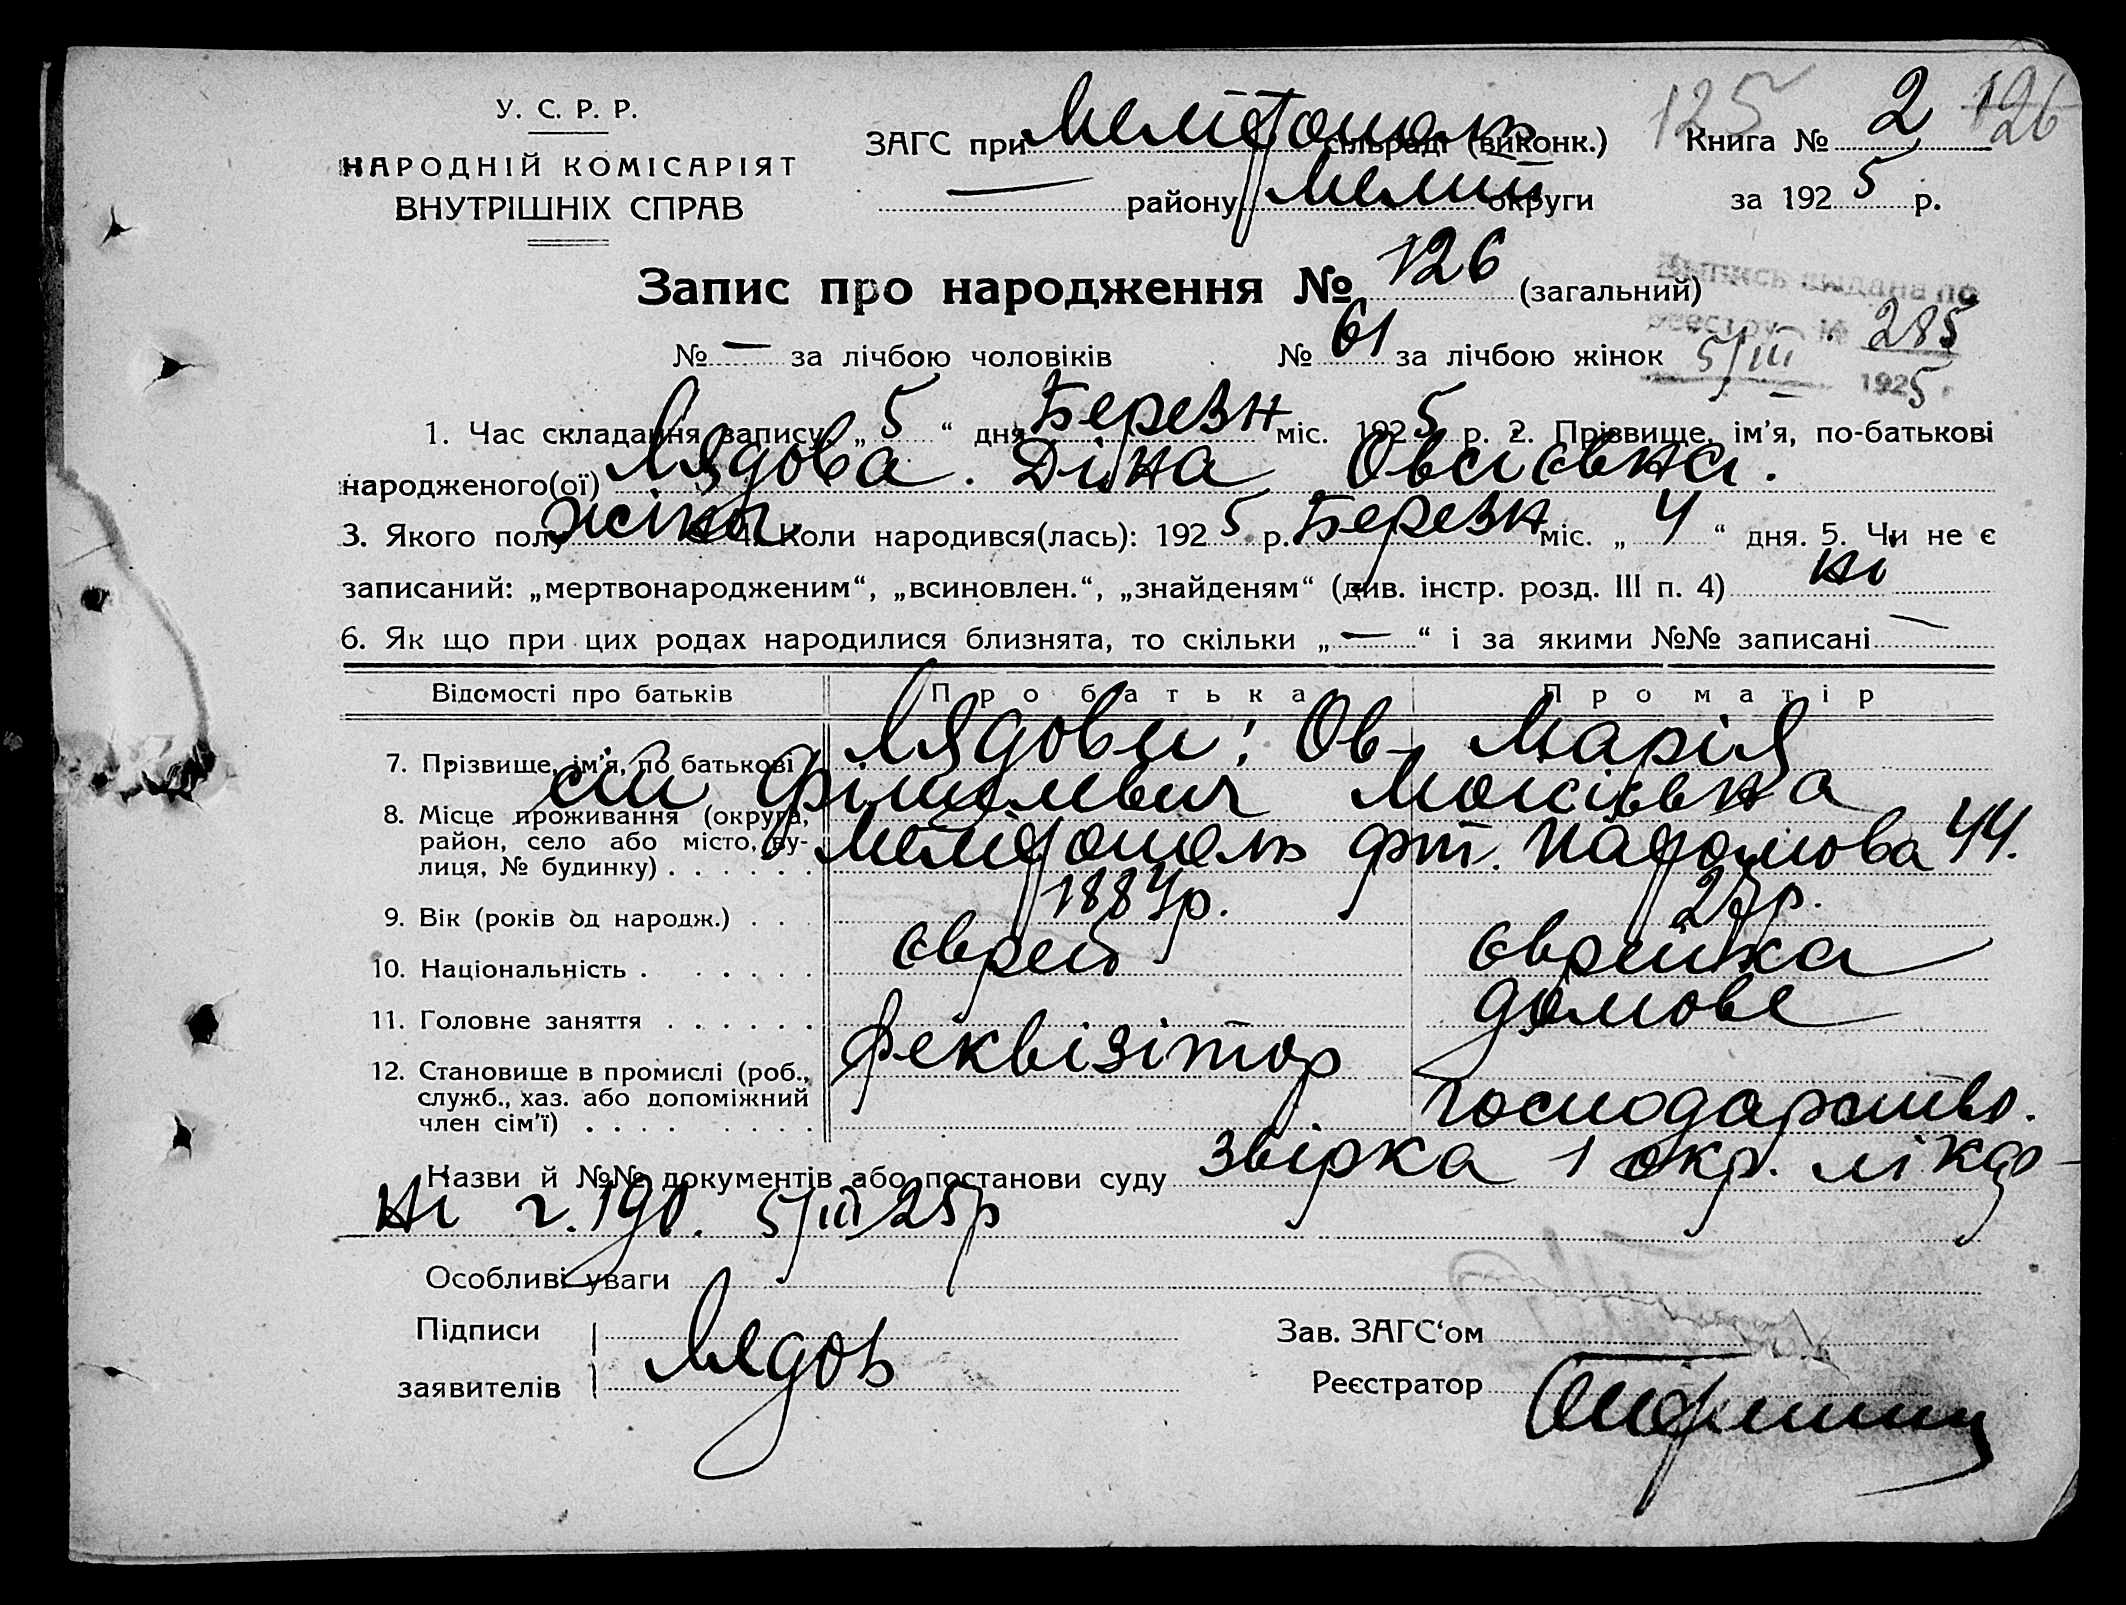 У. С. Р. Р.
НАРОДНІЙ КОМІСАРІЯТ
ВНУТРІШНІХ СПРАВ
ЗАГС при Мелітополь сільраді (виконк.) 125 Книга № 2 126
— району Меліт округи за 1925 р.
Запис про народження № 126 (загальний)
Выпись выдана по
реестру № 285
5/III 1925 г.
№ — за лічбою чоловіків № 61 за лічбою жінок
1. Час складання запису: „5“ дня Березн міс. 1925 р. 2. Прізвище, ім’я, по-батькові
народженого(ої) Лядова. Діна Овсієвна.
3. Якого полу жіноч. 4. Коли народився(лась): 1925 р. Березн міс. „4“ дня. 5. Чи не є
записаний: „мертвонародженим“, „всиновлен.“, „знайденям“ (див. інстр. розд. III п. 4) ні
6. Як що при цих родах народилися близнята, то скільки „—“ і за якими №№ записані —
Відомості про батьків Про батька Про матір
7. Прізвище, ім’я, по батькові Лядови: Ов- Марія
сій Фішелевич Мойсієвна
8. Місце проживання (округа,
район, село або місто, ву-
лиця, № будинку) Мелітополь 44.
9. Вік (років од народж.) 1887р. 27р.
10. Національність єврей єврейка
11. Головне заняття домове
12. Становище в промислі (роб.,
служб., хаз. або допоміжний
член сім’ї) Реквізітор господарство.
Назви й №№ документів або постанови суду Звірка 1 окр. лікар-
ні 5/III 25р
Особливі уваги
Підписи
заявителів Лядов
Зав. ЗАГС‘ом
Реєстратор